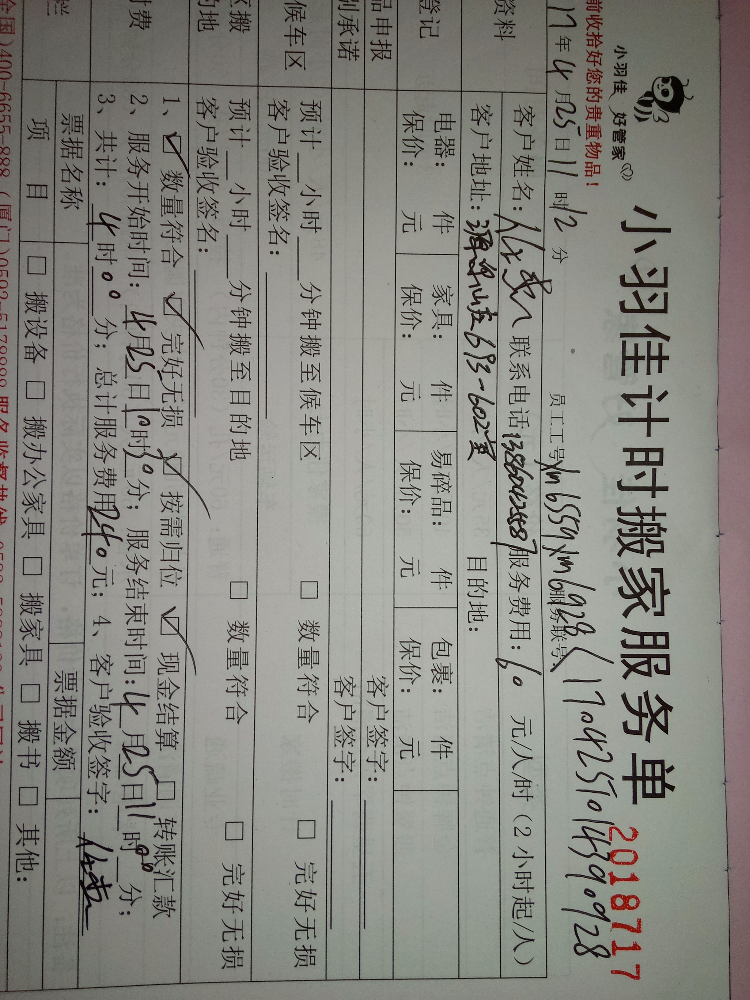 小羽佳 好管家
小羽佳计时搬家服务单
2018717
前收拾好您的贵重物品！
17年4月25日11时12分 员工工号 xm6559 xm6928 服务联号 170425101439 0928
资料 客户姓名： 联系电话 服务费用：60 元/人/时（2小时起/人）
客户地址： 693-602室 目的地：
登记 电器： 件 家具： 件 易碎品： 件 包裹： 件
保价： 元 保价： 元 保价： 元 保价： 元
品申报 客户签字：
别承诺 客户签字：
候车区 预计__小时__分钟搬至候车区 □ 数量符合 □ 完好无损
客户验收签名：
区搬 预计__小时__分钟搬至目的地 □ 数量符合 □ 完好无损
的地 客户验收签名：
1、☑ 数量符合 ☑ 完好无损 ☑ 按需归位 ☑ 现金结算 □ 转账汇款
时费 2、服务开始时间：4月25日10时30分；服务结束时间：4月25日11时00分；
3、共计：4时00分；总计服务费用240元；4、客户验收签字：
票据名称 票据金额
栏 项 目 □ 搬设备 □ 搬办公家具 □ 搬家具 □ 搬书 □ 其他：
全国)400-6655-888（厦门)0592-5178888